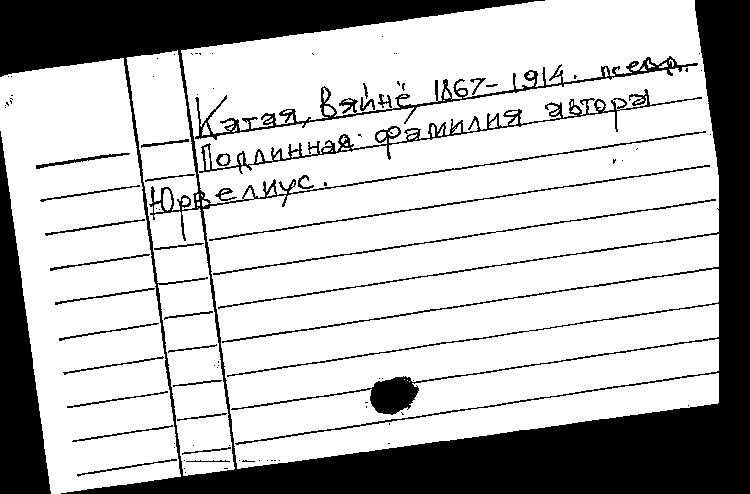 Катая, Вяйнё, 1867-1914. псевд.
Подлинная фамилия автора
Юрвелиус.